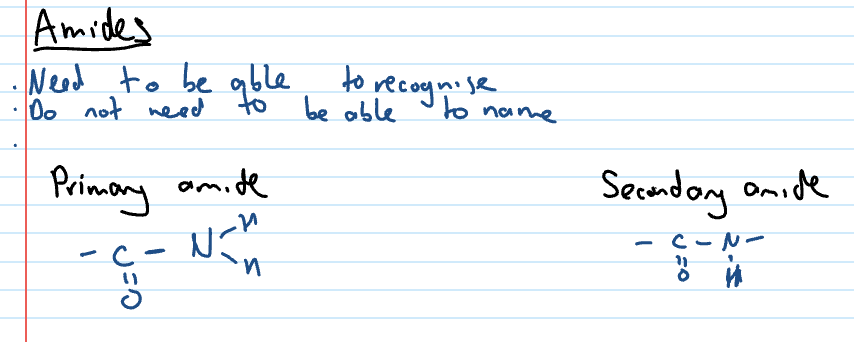 Amides
· Need to be able to recognise
· Do not need to be able to name
·
Primary amide
Secondary amide
- C - N H H
= O
- C - N -
= O H